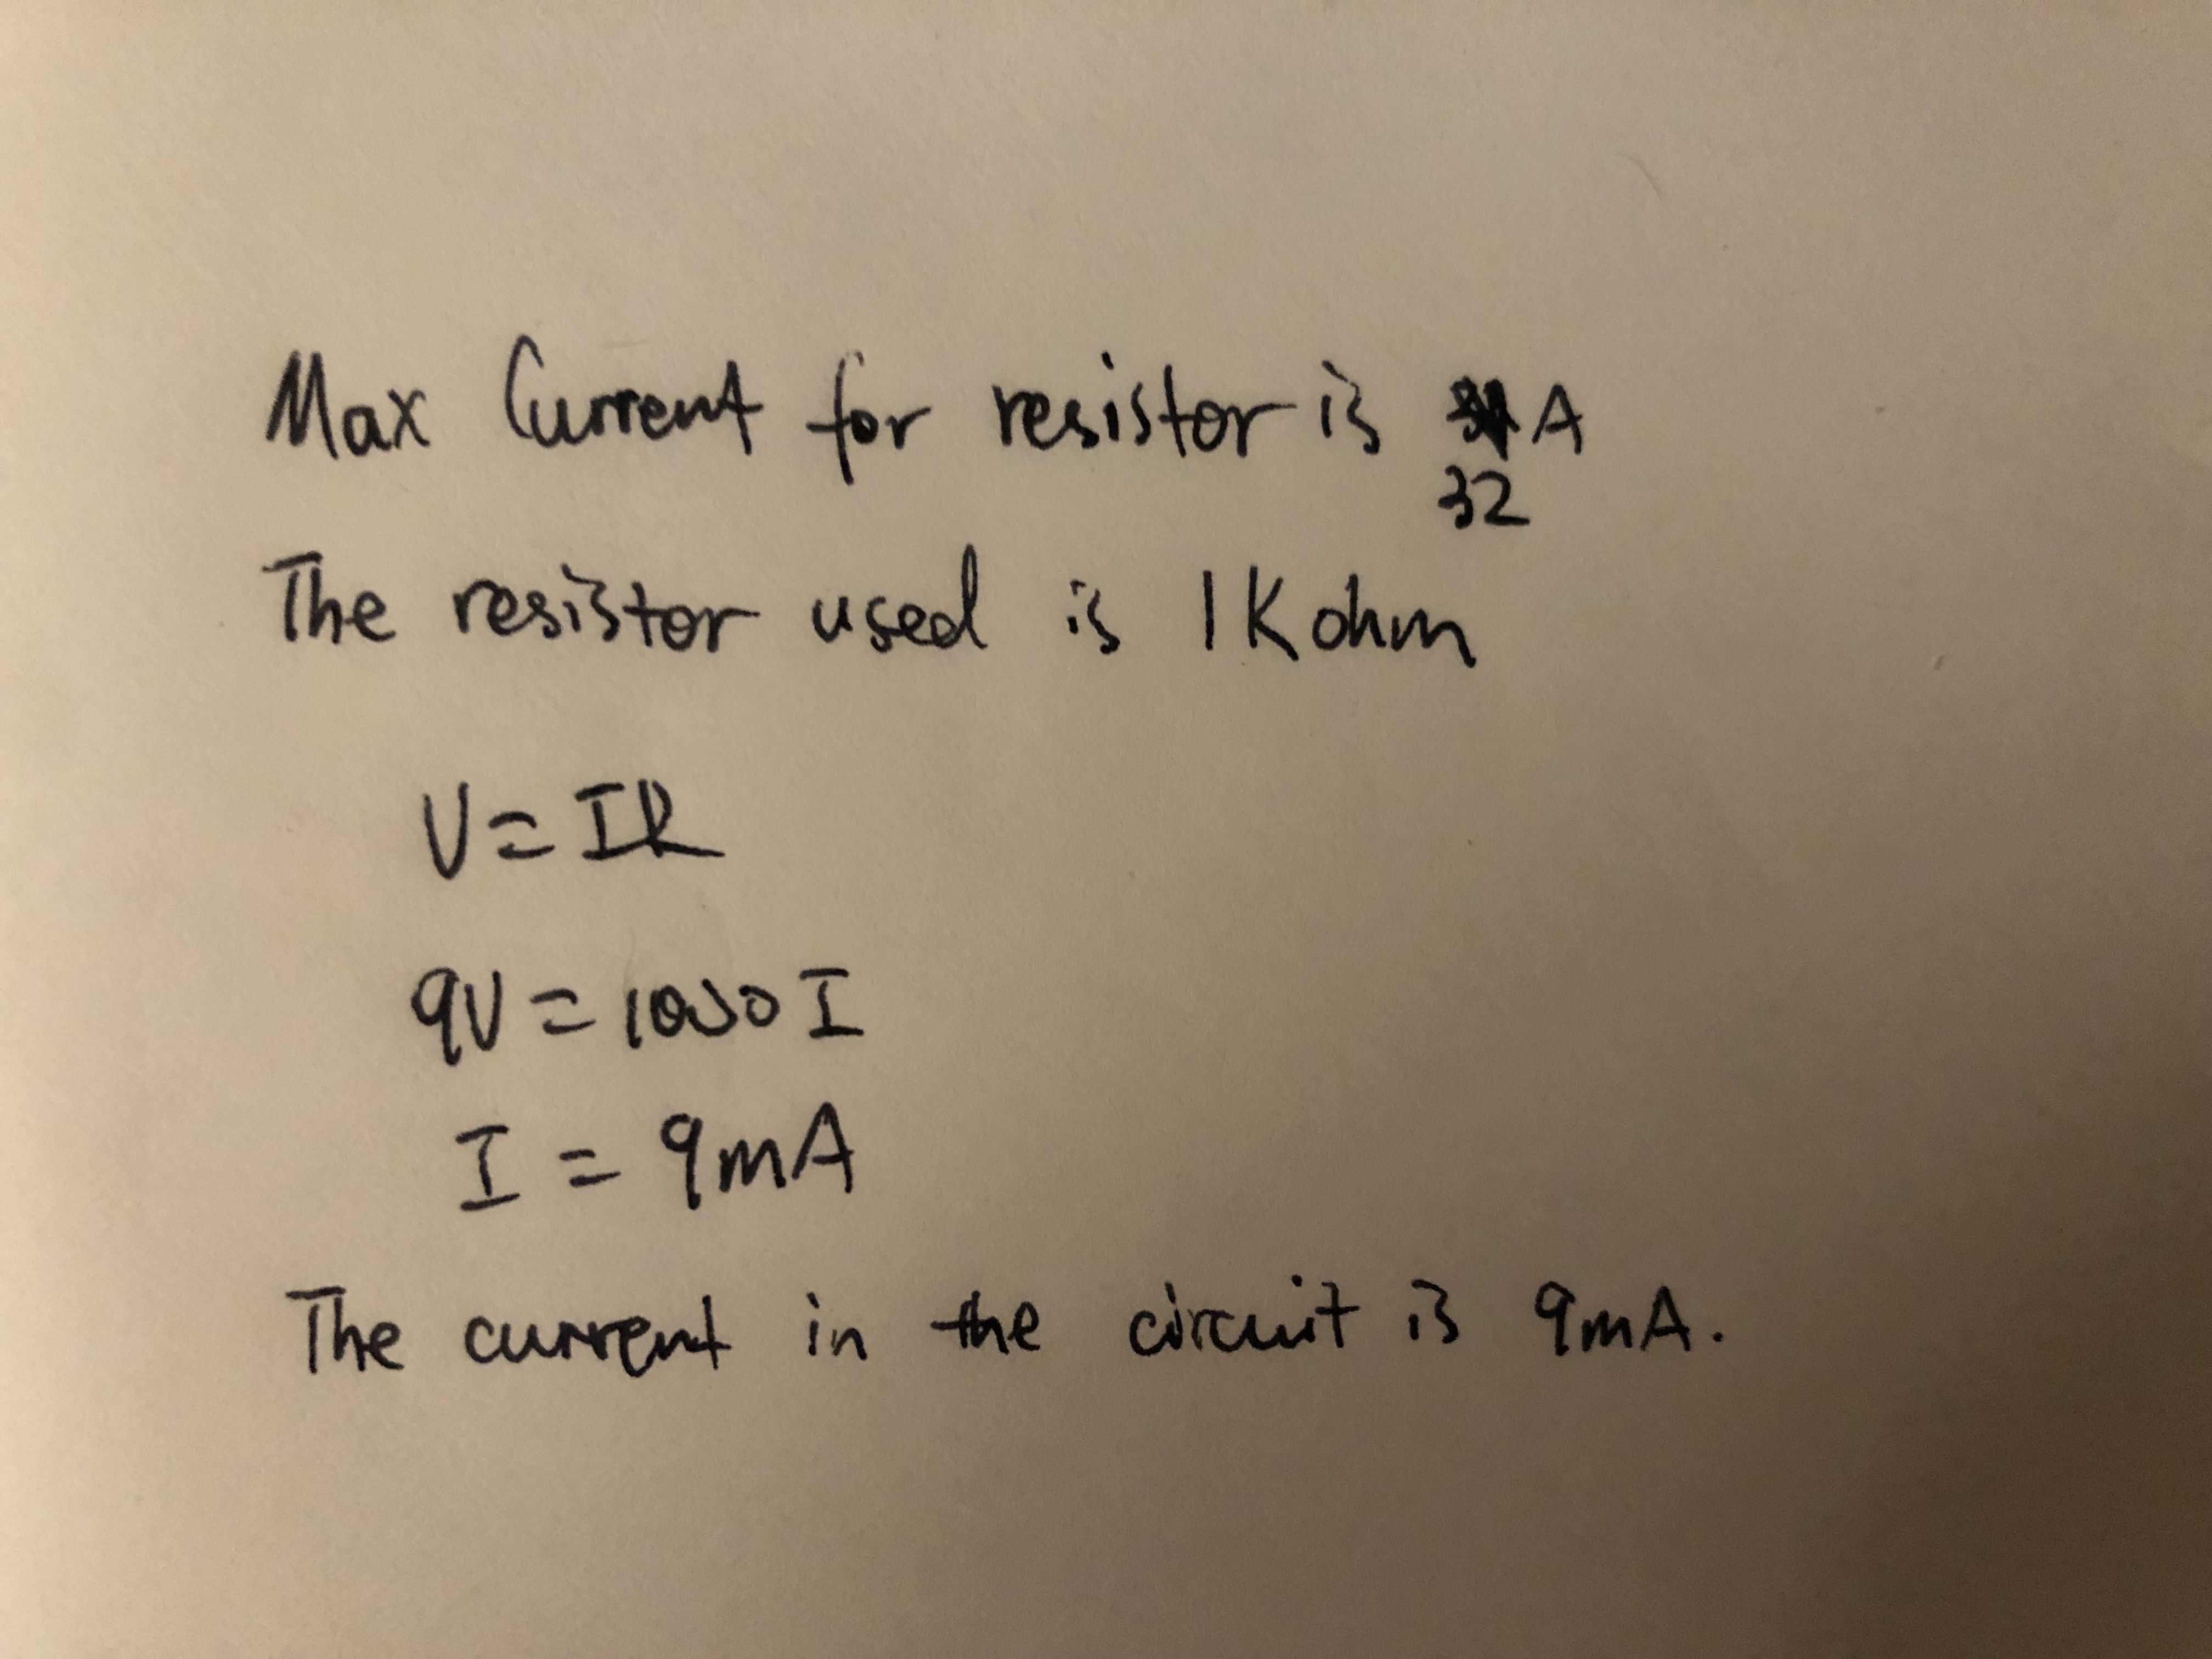 Max Current for resistor is A
32
The resistor used is 1K ohm
V = IR
9V = 1000 I
I = 9mA
The current in the circuit is 9mA.